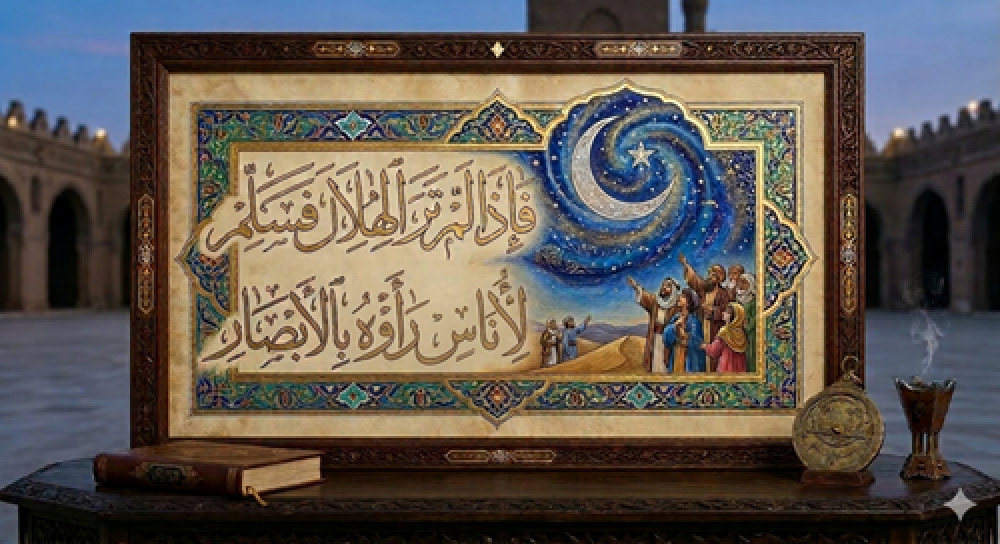 فَإِذَا لَمْ تَرَ الْهِلَالَ فَسَلِّمْ
لِأُنَاسٍ رَأَوْهُ بِالْأَبْصَارِ